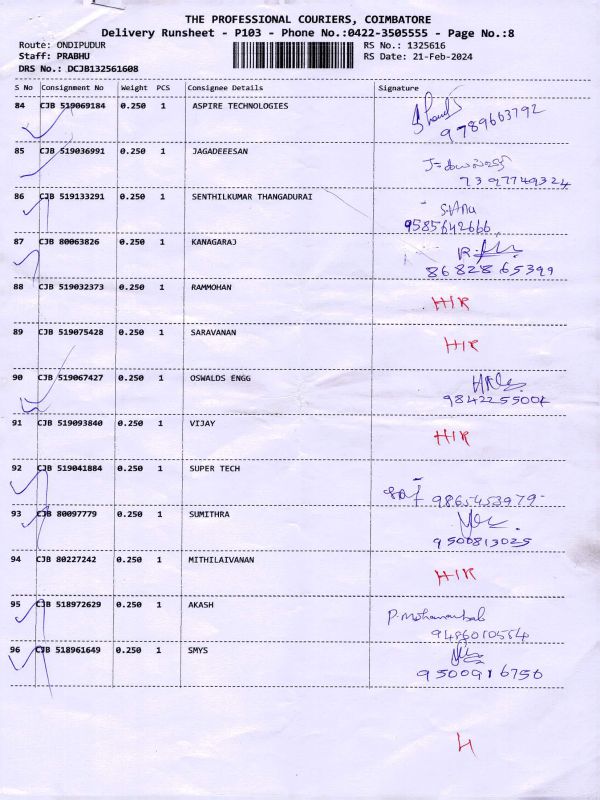 THE PROFESSIONAL COURIERS, COIMBATORE
Delivery Runsheet - P103 - Phone No.:0422-3505555 - Page No.:8
Route: ONDIPUDUR RS No.: 1325616
Staff: PRABHU RS Date: 21-Feb-2024
DRS No.: DCJB132561608
S No Consignment No Weight PCS Consignee Details Signature
84 CJB 519069184 0.250 1 ASPIRE TECHNOLOGIES
9789663792
85 CJB 519036991 0.250 1 JAGADEEESAN
7397749324
86 CJB 519133291 0.250 1 SENTHILKUMAR THANGADURAI
9585642666
87 CJB 80063826 0.250 1 KANAGARAJ
8682865399
88 CJB 519032373 0.250 1 RAMMOHAN HIR
89 CJB 519075428 0.250 1 SARAVANAN HIR
90 CJB 519067427 0.250 1 OSWALDS ENGG
91 CJB 519093840 0.250 1 VIJAY HIR
92 CJB 519041884 0.250 1 SUPER TECH
9865453979
93 CJB 80097779 0.250 1 SUMITHRA
9500813025
94 CJB 80227242 0.250 1 MITHILAIVANAN HIR
95 CJB 518972629 0.250 1 AKASH
9486010564
96 CJB 518961649 0.250 1 SMYS
9500916750
4